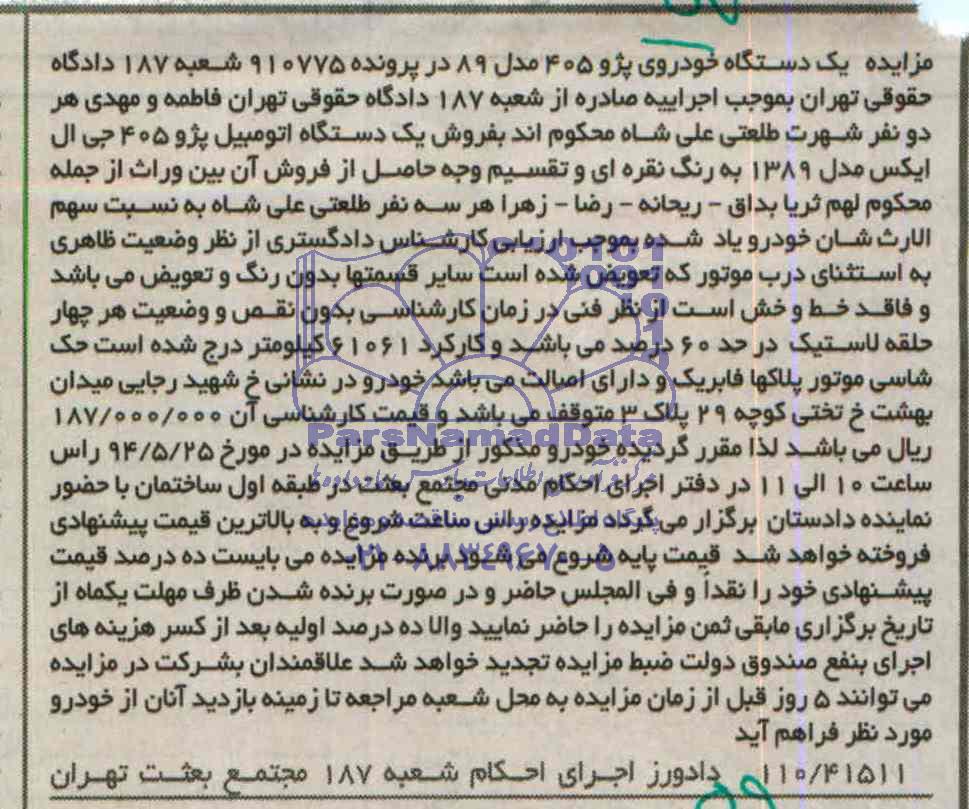 مزایده یک دستگاه خودروی پژو ۴۰۵ مدل ۸۹ در پرونده ۹۱۰۷۷۵ شعبه ۱۸۷ دادگاه
حقوقی تهران بموجب اجراییه صادره از شعبه ۱۸۷ دادگاه حقوقی تهران فاطمه و مهدی هر
دو نفر شهرت طلعتی علی شاه محکوم اند بفروش یک دستگاه اتومبیل پژو ۴۰۵ جی ال
ایکس مدل ۱۳۸۹ به رنگ نقره ای و تقسیم وجه حاصل از فروش آن بین وراث از جمله
محکوم لهم ثریا بداق - ریحانه - رضا - زهرا هر سه نفر طلعتی علی شاه به نسبت سهم
الارث شان خودرو یاد شده بموجب ارزیابی کارشناس دادگستری از نظر وضعیت ظاهری
به استثنای درب موتور که تعویض شده است سایر قسمتها بدون رنگ و تعویض می باشد
و فاقد خط و خش است از نظر فنی در زمان کارشناسی بدون نقص و وضعیت هر چهار
حلقه لاستیک در حد ۶۰ درصد می باشد و کارکرد ۶۱۰۶۱ کیلومتر درج شده است حک
شاسی موتور پلاکها فابریک و دارای اصالت می باشد خودرو در نشانی خ شهید رجایی میدان
بهشت خ تختی کوچه ۲۹ پلاک ۳ متوقف می باشد و قیمت کارشناسی آن ۱۸۷/۰۰۰/۰۰۰
ParsNamadData
ریال می باشد لذا مقرر گردیده خودرو مذکور از طریق مزایده در مورخ ۹۴/۵/۲۵ راس
ساعت ۱۰ الی ۱۱ در دفتر اجرای احکام مدنی مجتمع بعثت در طبقه اول ساختمان با حضور
نماینده دادستان برگزار می گردد مزایده راس ساعت شروع و به بالاترین قیمت پیشنهادی
فروخته خواهد شد قیمت پایه شروع می شود برنده مزایده می بایست ده درصد قیمت
پیشنهادی خود را نقداً و فی المجلس حاضر و در صورت برنده شدن ظرف مهلت یکماه از
تاریخ برگزاری مابقی ثمن مزایده را حاضر نمایید والا ده درصد اولیه بعد از کسر هزینه های
اجرای بنفع صندوق دولت ضبط مزایده تجدید خواهد شد علاقمندان بشرکت در مزایده
می توانند ۵ روز قبل از زمان مزایده به محل شعبه مراجعه تا زمینه بازدید آنان از خودرو
مورد نظر فراهم آید
۱۱۰/۴۱۵۱۱ دادورز اجرای احکام شعبه ۱۸۷ مجتمع بعثت تهران